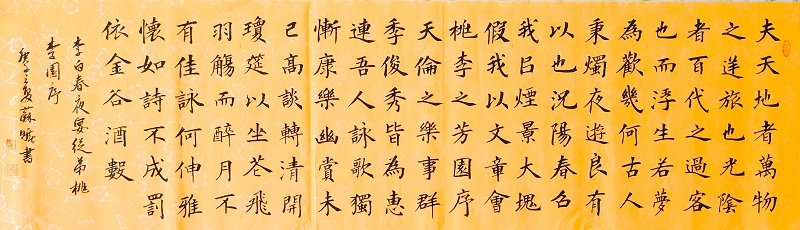 夫天地者萬物
之逆旅也光陰
者百代之過客
也而浮生若夢
為歡幾何古人
秉燭夜遊良有
以也況陽春召
我㠯煙景大塊
假我以文章會
桃李之芳園序
天倫之樂事群
季俊秀皆為惠
連吾人詠歌獨
慚康樂幽賞未
已高談轉清開
瓊筵以坐芲飛
羽觴而醉月不
有佳詠何伸雅
懷如詩不成罰
依金谷酒數
李白春夜宴從弟桃
李園序
夏蘇書